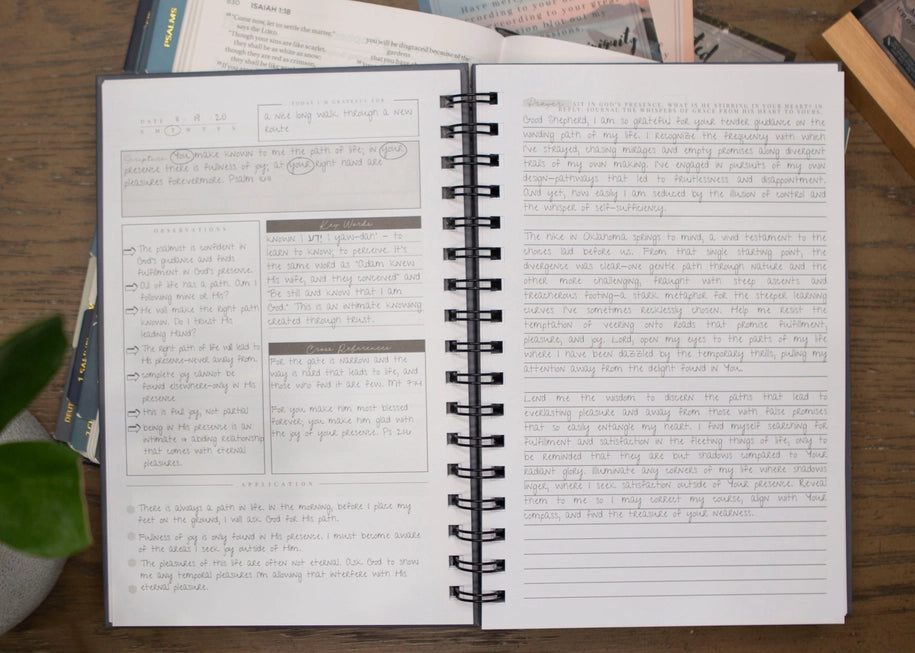 PSALMS
ISAIAH 1:18
"Come now, let us settle the matter,"
says the LORD.
"Though your sins are like scarlet,
they shall be as white as snow;
though they are red as crimson,
they shall be like
"If you
you will be disgraced because of the
gardens
that you have
Have mercy
according to your
according to your great
blot out my
TODAY I'M GRATEFUL FOR
a nice long walk through a new
route
DATE 8 · 19 · 20
S M T W T F S
Scripture You make known to me the path of life; in your
presence there is fullness of joy; at your right hand are
pleasures forevermore. Psalm 16:11
OBSERVATIONS
The psalmist is confident in
God's guidance and finds
fulfillment in God's presence.
All of life has a path. Am I
following mine or His?
He will make the right path
known. Do I trust His
leading Hand?
The right path of life will lead to
His presence—never away from.
complete joy cannot be
found elsewhere—only in His
presence
this is full joy, not partial
being in His presence is an
intimate & abiding relationship
that comes with eternal
pleasures.
Key Words
known | ידע | yaw-dah' - to
learn to know; to perceive. It's
the same word as "Adam knew
His wife, and they conceived" and
"Be still and know that I am
God." This is an intimate knowing
created through trust.
Cross References
For the gate is narrow and the
way is hard that leads to life, and
those who find it are few. Mt 7:14
For you make him most blessed
forever; you make him glad with
the joy of your presence. Ps 21:6
APPLICATION
There is always a path in life. In the morning, before I place my
feet on the ground, I will ask God for His path.
Fullness of joy is only found in His presence. I must become aware
of the areas I seek joy outside of Him.
The pleasures of this life are often not eternal. Ask God to show
me any temporal pleasures I'm allowing that interfere with His
eternal pleasure.
Prayer SIT IN GOD'S PRESENCE. WHAT IS HE STIRRING IN YOUR HEART? IN
REPLY, JOURNAL THE WHISPERS OF GRACE FROM HIS HEART TO YOURS.
Good Shepherd, I am so grateful for your tender guidance on the
winding path of my life. I recognize the frequency with which
I've strayed, chasing mirages and empty promises along divergent
trails of my own making. I've engaged in pursuits of my own
design—pathways that led to fruitlessness and disappointment.
And yet, how easily I am seduced by the illusion of control and
the whisper of self-sufficiency.
The hike in Oklahoma springs to mind, a vivid testament to the
choices laid before us. From that single starting point, the
divergence was clear—one gentle path through nature and the
other more challenging, fraught with steep ascents and
treacherous footing—a stark metaphor for the steeper learning
curves I've sometimes recklessly chosen. Help me resist the
temptation of veering onto roads that promise fulfillment,
pleasure, and joy. Lord, open my eyes to the parts of my life
where I have been dazzled by the temporary thrills, pulling my
attention away from the delight found in You.
Lend me the wisdom to discern the paths that lead to
everlasting pleasure and away from those with false promises
that so easily entangle my heart. I find myself searching for
fulfillment and satisfaction in the fleeting things of life, only to
be reminded that they are but shadows compared to Your
radiant glory. Illuminate any corners of my life where shadows
linger, where I seek satisfaction outside of Your presence. Reveal
them to me so I may correct my course, align with Your
compass, and find the treasure of your nearness.